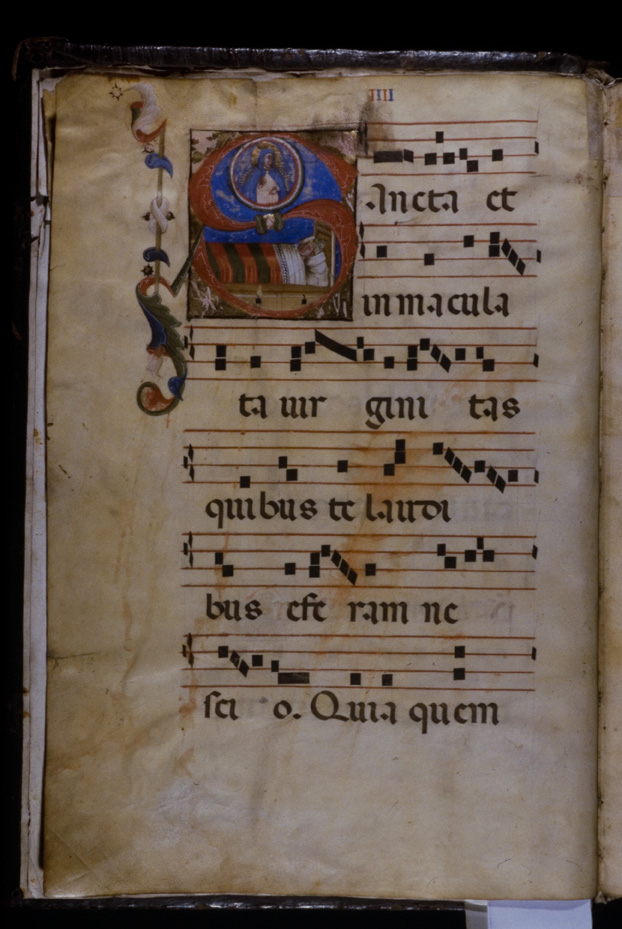 IIII
Sancta et
inmacula
ta uir gini tas
quibus te laudi
bus efe ram ne
scio o. Quia quem